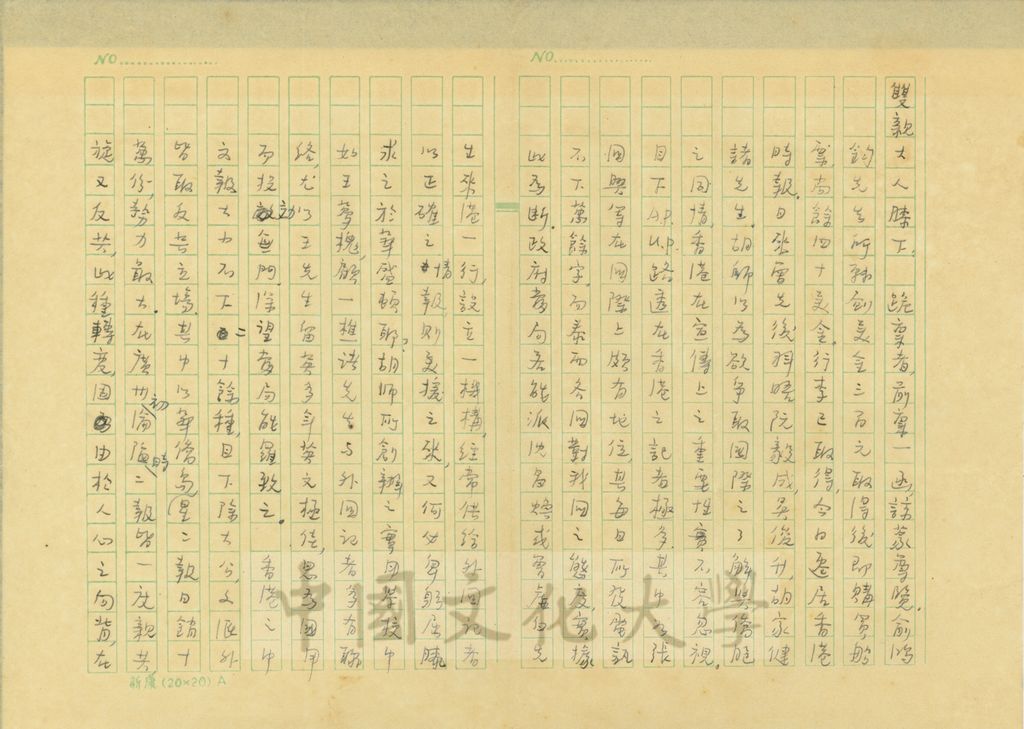 NO
NO
雙親大人膝下：跪稟者，前稟一函，諒蒙尊覽。俞鴻
鈞先生所孫創美金三百元取得後即購買船
票，尚餘四十美金。行李已取得，今日遷居香港
時報。日來曾先後拜晤阮毅成、吳俊升、胡家健
諸先生。胡師以為欲爭取國際之了解與僑胞
之同情，香港在宣傳上之重要性實不容忽視。
目下A.P. U.P.路透在香港之記者極多，其中 張
國興等在國際上頗有地位，其每日所發電訊
不下萬餘字，而泰西各國對我國之態度實據
此為斷。政府當局若能派沈昌煥或曾虛白先
生來港一行，設立一機構，經常供給外國記者
以正確之情報，則美援之來，又何必卑躬屈膝
求之於華盛頓耶。胡師所創辦之 學校中
如王夢槐、顧一樵諸先生與外國記者多有聯
絡，尤以王先生留英多年英文極佳，思為國用
而投効無門，深望當局能羅致之。 香港之中
文報大小不下二十餘種，目下除大公、文匯外
皆取反共立場。其中以華僑、島(星)二報日銷十
萬份，勢力最大。在廣州初淪陷時二報皆一度親共，
旋又反共，此種轉變，固由於人心之向背，在
新廣(20×20)A
中國文化大學